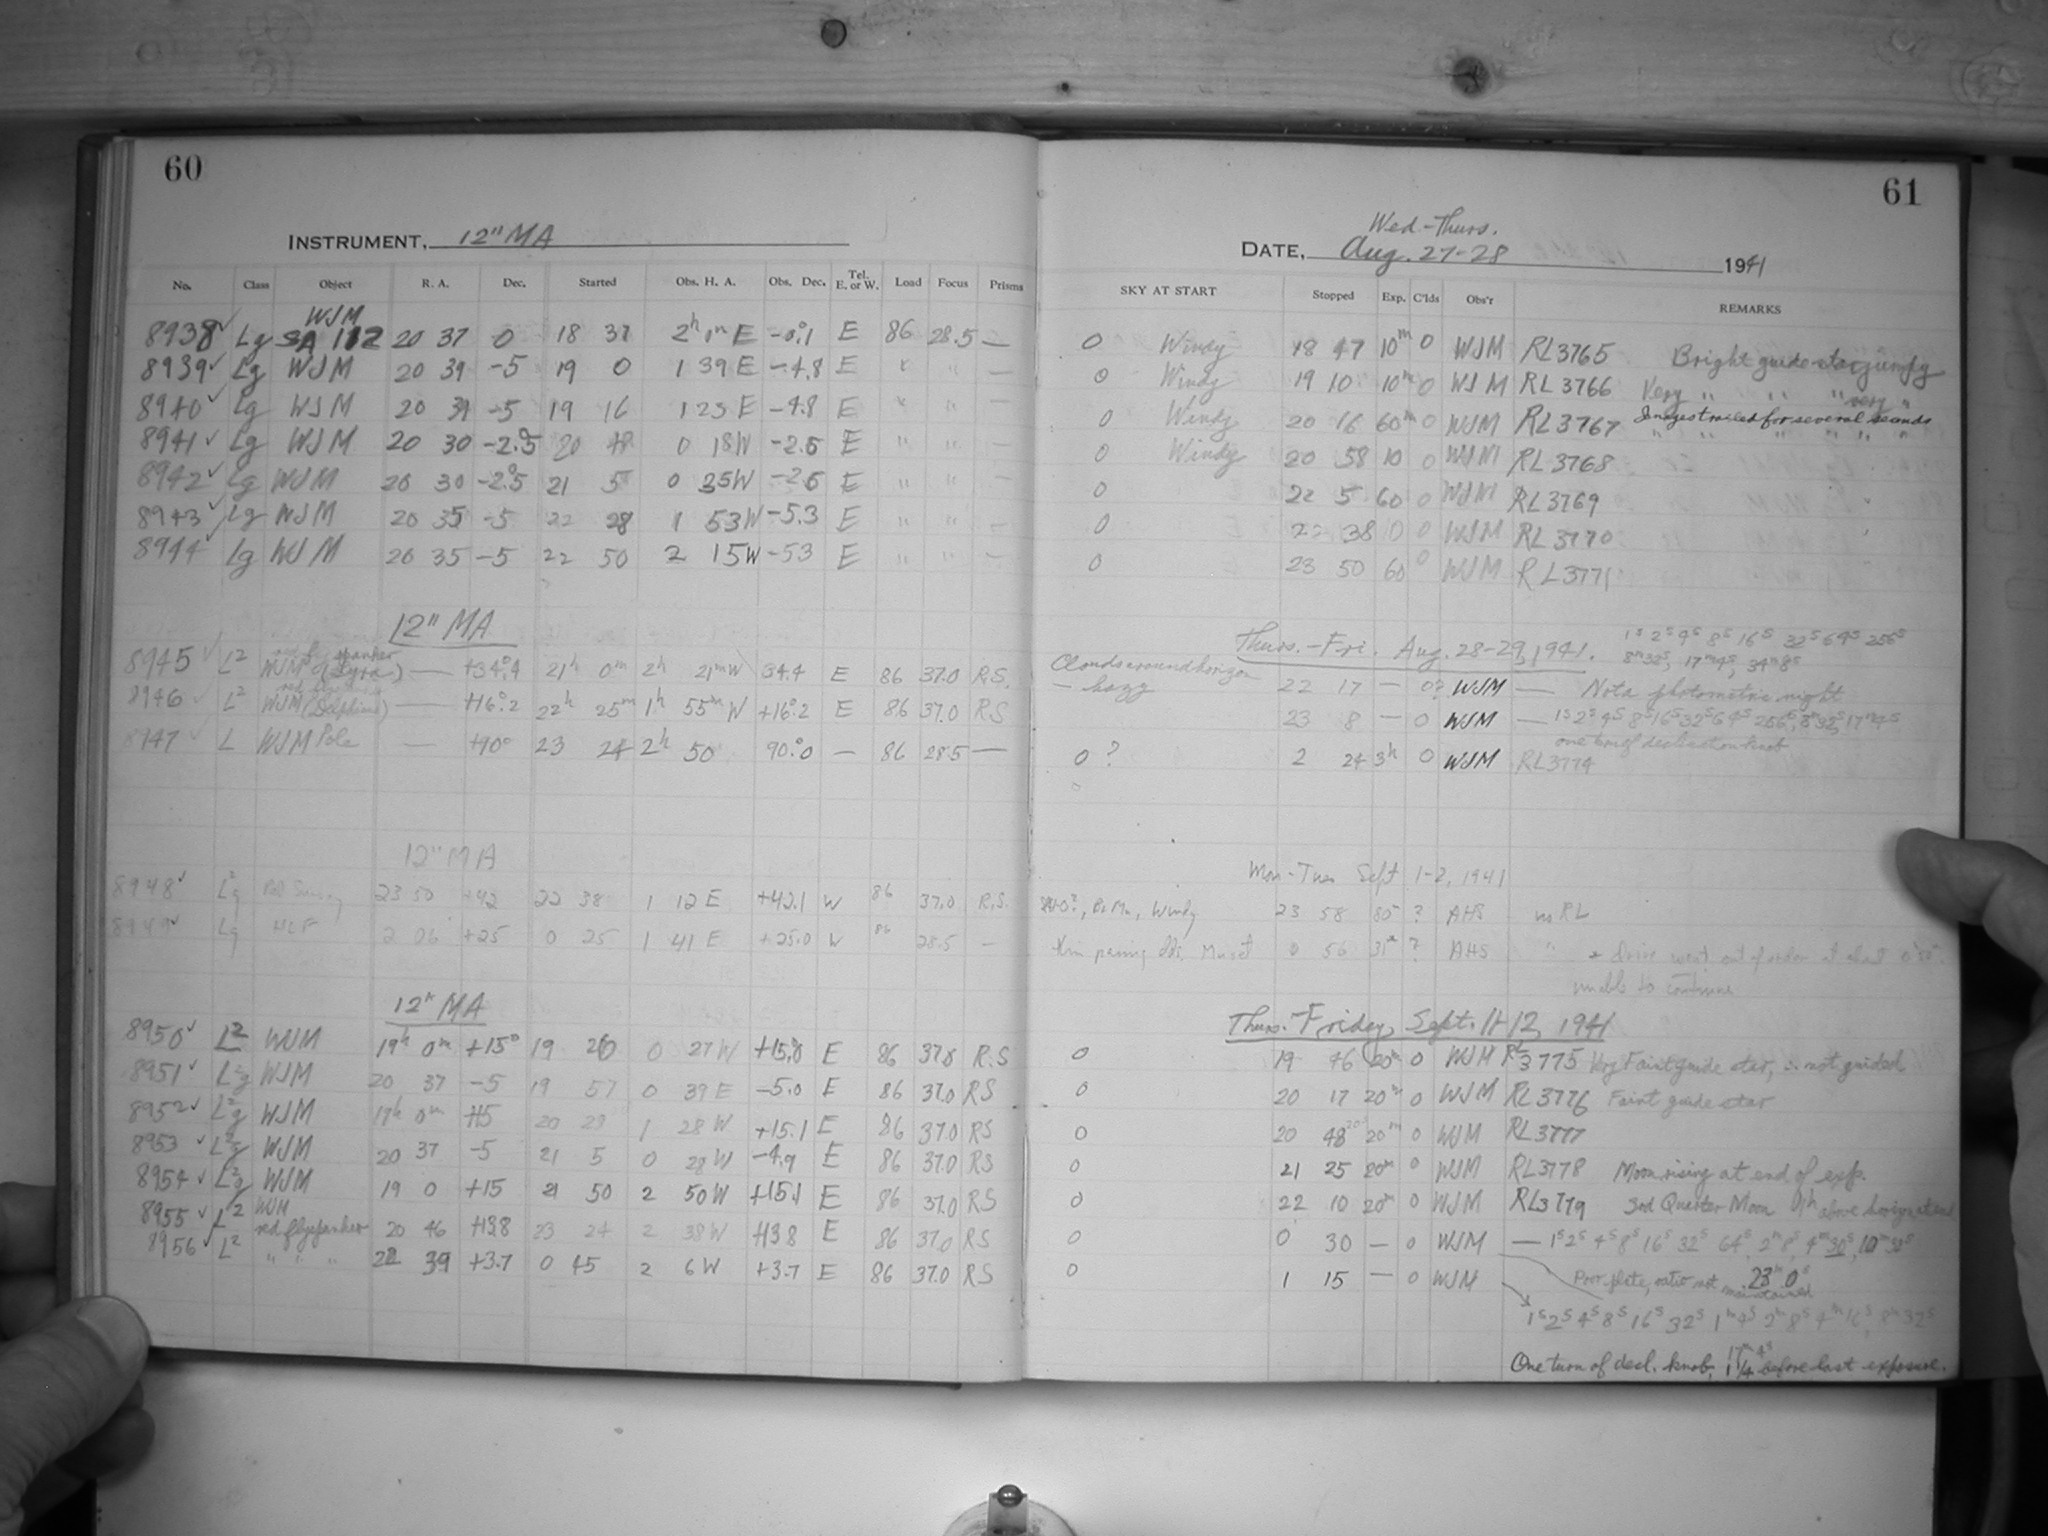 60
INSTRUMENT, 12" MA
No. Class Object R. A. Dec. Started Obs. H. A. Obs. Dec. Tel. E. or W. Load Focus Prisms
WJM
8938 ✓ Lg SA 112 20 37 0 18 37 2h 1m E -0.°1 E 86 28.5 —
8939 ✓ Lg WJM 20 39 -5 19 0 1 39 E -4.8 E " " —
8940 ✓ Lg WJM 20 39 -5 19 16 1 23 E -4.8 E " " —
8941 ✓ Lg WJM 20 30 -2.°5 20 48 0 18W -2.6 E " " —
8942 ✓ Lg WJM 20 30 -2.°5 21 5 0 35W -2.6 E " " —
8943 ✓ Lg WJM 20 35 -5 22 28 1 53W -5.3 E " " —
8944 ✓ Lg WJM 20 35 -5 22 50 2 15W -53 E " " —
12" MA
8945 ✓ L2 WJM (Lyra) — +34.°4 21h 0m 2h 21m W 34.4 E 86 37.0 R.S.
8946 ✓ L2 WJM (Delphinus) — +16.°2 22h 25m 1h 55m W +16.°2 E 86 37.0 RS
8947 ✓ L WJM Pole — +90° 23 24 2h 50 90.°0 — 86 28.5 —
12" MA
8948 ✓ L2g 23 50 +42 22 38 1 12 E +42.1 W 86 37.0 R.S.
8949 ✓ Lg HLF 2 06 +25 0 25 1 41 E +25.0 W 86 28.5 —
12" MA
8950 ✓ L2 WJM 19h 0m +15° 19 26 0 27 W +15.°0 E 86 37.0 R.S
8951 ✓ L2g WJM 20 37 -5 19 57 0 39 E -5.0 E 86 37.0 RS
8952 ✓ L2g WJM 19h 0m +15 20 28 1 28 W +15.1 E 86 37.0 RS
8953 ✓ L2g WJM 20 37 -5 21 5 0 28 W -4.9 E 86 37.0 RS
8954 ✓ L2g WJM 19 0 +15 21 50 2 50 W +15.1 E 86 37.0 RS
WJM
8955 ✓ L2 red flyspanker 20 46 +13.8 23 24 2 38W +13.8 E 86 37.0 RS
8956 ✓ L2 " " " 22 39 +3.7 0 45 2 6 W +3.7 E 86 37.0 RS
61
Wed.-Thurs.
DATE, Aug. 27-28 1941
SKY AT START Stopped Exp. C'lds Obs'r REMARKS
0 Windy 18 47 10m 0 WJM RL3765 Bright guide star jumpy
0 Windy 19 10 10m 0 WJM RL3766 Very " " " very "
0 Windy 20 16 60m 0 WJM RL3767 Images trailed for several seconds
0 Windy 20 58 10 0 WJM RL3768
0 22 5 60 0 WJM RL3769
0 22 38 10 0 WJM RL3770
0 23 50 60 0 WJM RL3771
1s 2s 4s 8s 16s 32s 64s 256s
Thurs.-Fri. Aug. 28-29, 1941. 8m32s, 17m4s, 34m8s
Clouds around horizon
— hazy 22 17 — 0? WJM — Not a photometric night
23 8 — 0 WJM — 1s 2s 4s 8s 16s 32s 64s 256s, 8m32s, 17m4s
one turn of declination knob
0 ? 2 24 3h 0 WJM RL3774
Mon-Tues Sept 1-2, 1941
Windy 23 58 80 ? AHS no RL
0 56 31m ? AHS " * Drive went out of order at about
unable to continue
Thurs.-Friday, Sept. 11-12, 1941
0 19 46 20m 0 WJM RL3775 Very Faint guide star, ∴ not guided
0 20 17 20m 0 WJM RL3776 Faint guide star
0 20 48 20m 0 WJM RL3777
0 21 25 20m 0 WJM RL3778 Moon rising at end of exp.
0 22 10 20m 0 WJM RL3779 3rd Quarter Moon above horizon at end
0 0 30 — 0 WJM — 1s 2s 4s 8s 16s 32s 64s, 2m8s, 4m30s, 10m32s
0 1 15 — 0 WJM Poor plate, ratio not maintained 23m 0s
1s 2s 4s 8s 16s 32s 1m4s 2m8s 4m16s, 8m32s
17m4s
One turn of decl. knob, 1 1/4 before last exposure.